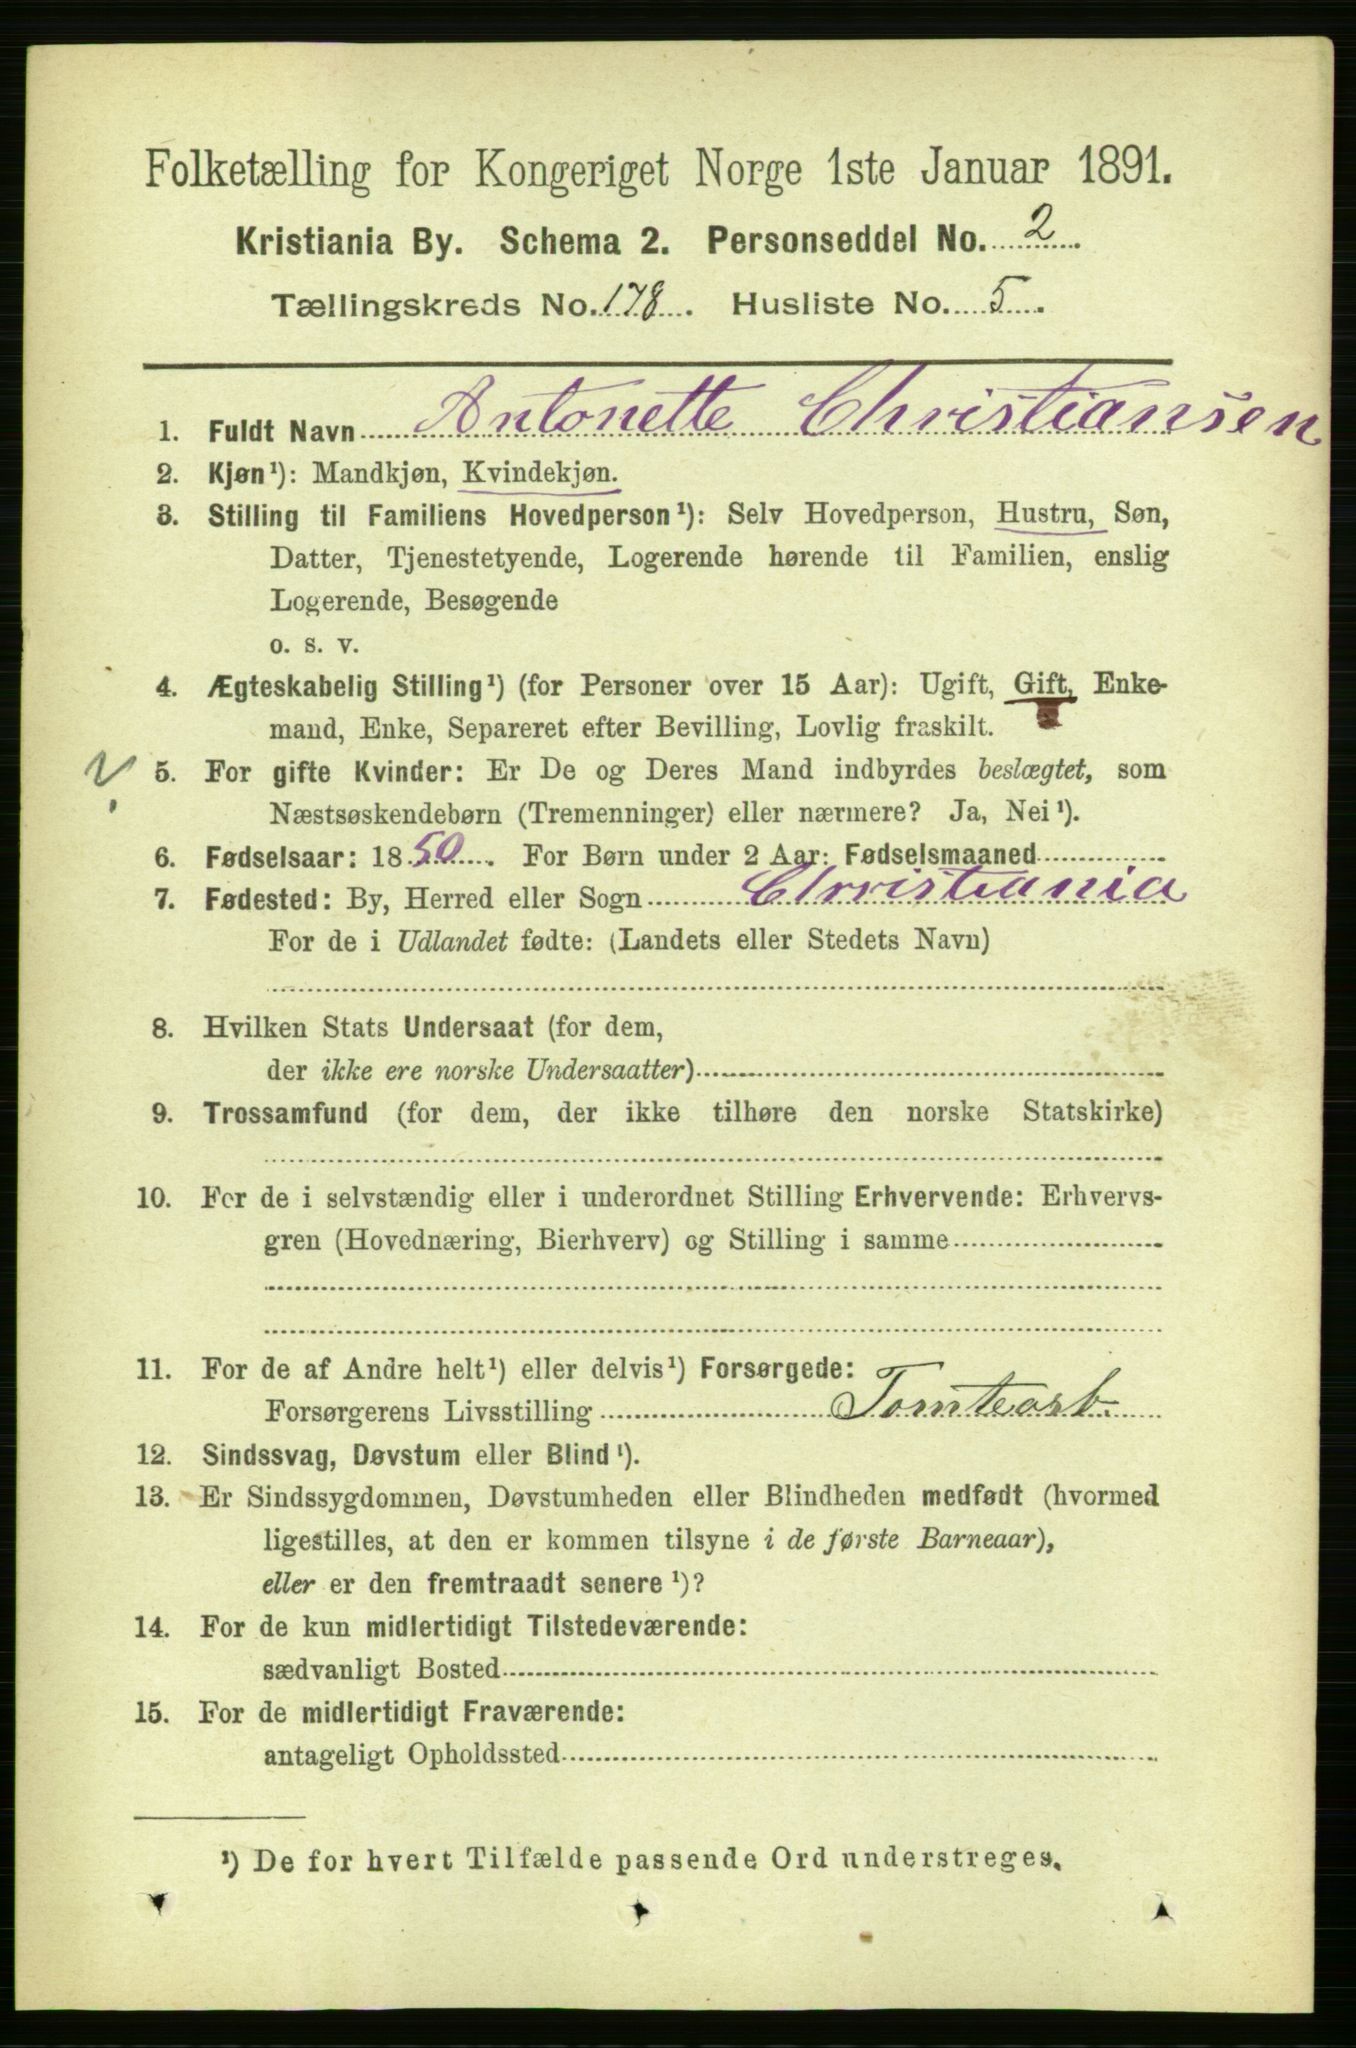 Folketælling for Kongeriget Norge 1ste Januar 1891.
Kristiania By. Schema 2. Personseddel No. 2.
Tællingskreds No. 178. Husliste No. 5.
1. Fuldt Navn Antonette Christiansen
2. Kjøn¹): Mandkjøn, Kvindekjøn.
3. Stilling til Familiens Hovedperson¹): Selv Hovedperson, Hustru, Søn,
Datter, Tjenestetyende, Logerende hørende til Familien, enslig
Logerende, Besøgende
o. s. v.
4. Ægteskabelig Stilling¹) (for Personer over 15 Aar): Ugift, Gift, Enke-
mand, Enke, Separeret efter Bevilling, Lovlig fraskilt.
? 5. For gifte Kvinder: Er De og Deres Mand indbyrdes beslægtet, som
Næstsøskendebørn (Tremenninger) eller nærmere? Ja, Nei¹).
6. Fødselsaar: 1850. For Børn under 2 Aar: Fødselsmaaned
7. Fødested: By, Herred eller Sogn Christiania
For de i Udlandet fødte: (Landets eller Stedets Navn)
8. Hvilken Stats Undersaat (for dem,
der ikke ere norske Undersaatter)
9. Trossamfund (for dem, der ikke tilhøre den norske Statskirke)
10. For de i selvstændig eller i underordnet Stilling Erhvervende: Erhvervs-
gren (Hovednæring, Bierhverv) og Stilling i samme
11. For de af Andre helt¹) eller delvis¹) Forsørgede:
Forsørgerens Livsstilling Tomtearb.
12. Sindssvag, Døvstum eller Blind¹).
13. Er Sindssygdommen, Døvstumheden eller Blindheden medfødt (hvormed
ligestilles, at den er kommen tilsyne i de første Barneaar),
eller er den fremtraadt senere¹)?
14. For de kun midlertidigt Tilstedeværende:
sædvanligt Bosted
15. For de midlertidigt Fraværende:
antageligt Opholdssted
¹) De for hvert Tilfælde passende Ord understreges.